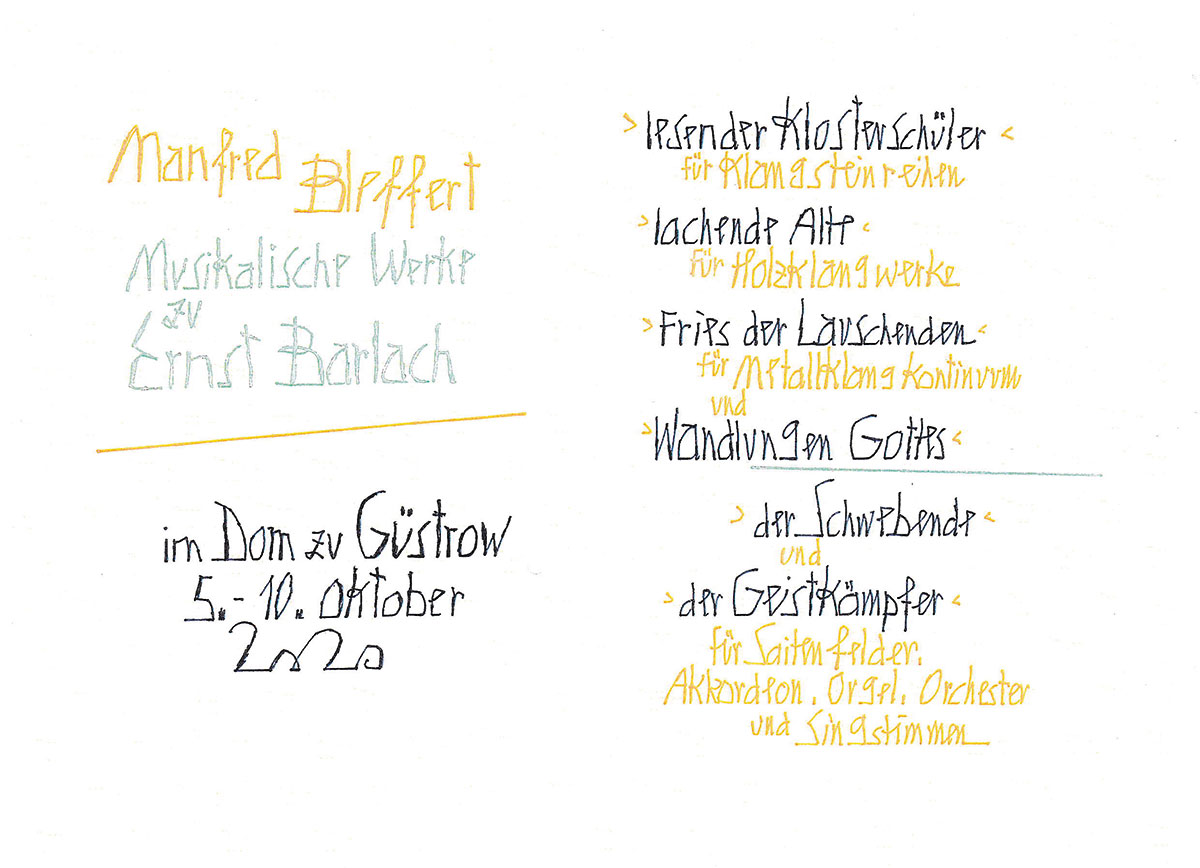 Manfred Bleffert
Musikalische Werke
zu
Ernst Barlach
im Dom zu Güstrow
5.-10. Oktober
2020
>lesender Klosterschüler<
für Klangsteinreihen
>lachende Alte<
für Holzklangwerke
>Fries der Lauschenden<
für Metallklangkontinuum
und
>Wandlungen Gottes<
>der Schwebende<
und
>der Geistkämpfer<
für Saitenfelder,
Akkordeon, Orgel, Orchester
und Singstimmen